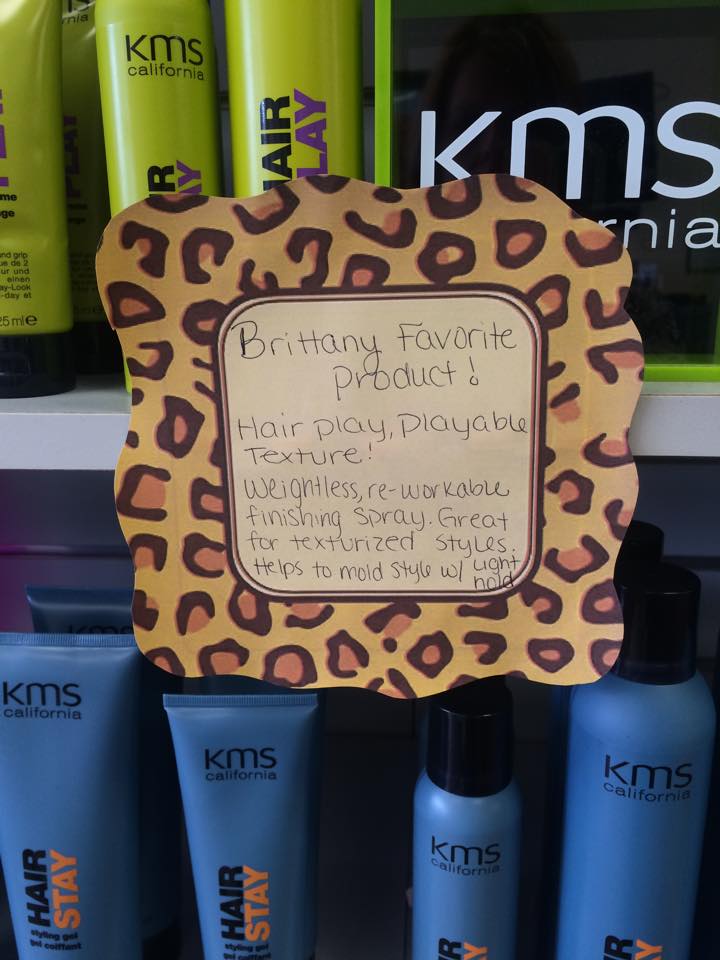 KMS
california
HAIR
PLAY
KMS
california
Brittany Favorite
product!
Hair play, Playable
Texture!
Weightless, re-workable
finishing spray. Great
for texturized styles.
Helps to mold style w/ Light
hold
KMS
california
HAIR
STAY
styling gel
gel coiffant
KMS
california
HAIR
STAY
styling gel
gel coiffant
KMS
california
KMS
california